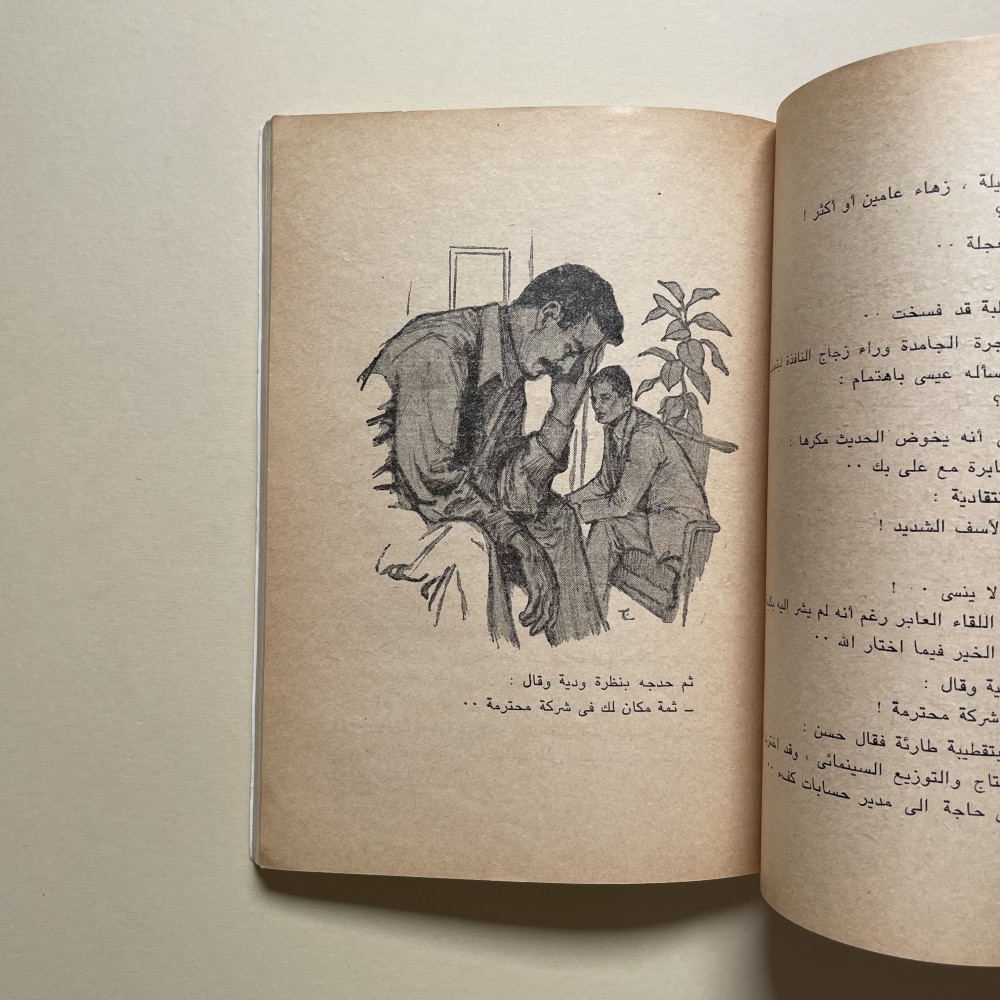 ثم حدجه بنظرة ودية وقال :
ـ ثمة مكان لك فى شركة محترمة ٠٠
، زهاء عامين أو أكثر !
؟
٠٠
قد فسخت ٠٠
الجامدة وراء زجاج النافذة
عيسى باهتمام :
؟
أنه يخوض الحديث مكرها :
مع على بك ٠٠
:
الشديد !
لا ينسى ٠٠ !
اللقاء العابر رغم أنه لم يشر اليه
الخير فيما اختار الله ٠٠
وقال :
شركة محترمة !
طارئة فقال حسن :
والتوزيع السينمائى ، وقد
حاجة الى مدير حسابات كفء ٠٠